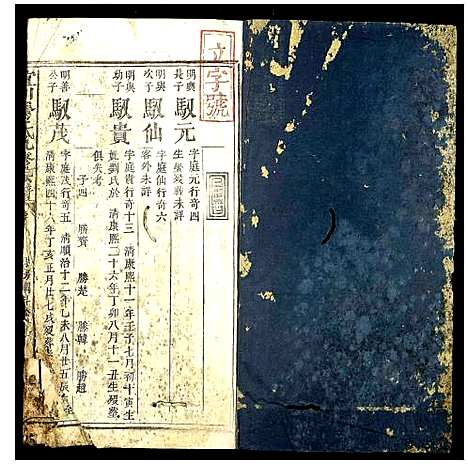 立字號
明與長子
馭元
字庭元行奇四
生葬娶葬未詳
明與次子
馭仙
字庭仙行奇六
客外未詳
明與幼子
馭貴
字庭貴行奇十三 清康熙十一年壬子七月初十寅生
娶劉氏於 清康熙二十六年丁卯八月十一丑生歿葬
俱失考
子四 勝齊 勝楚 勝韓 勝趙
明善公子
馭茂
字庭茂行奇五 清順治十二年乙未八月廿五辰
清康熙四十六年丁亥正月廿七戌歿葬